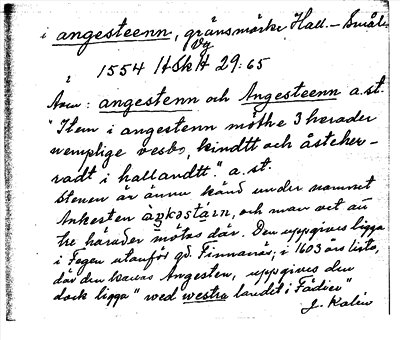 i angesteenn, gränsmärke Hall.–Smål.
1554 HSkH Vg 29:65
Anm: angestenn och Angesteenn a.st.
"Item i angestenn möthe 3 herader
wemplige vesbo, kindtt och åsteher-
radt i hallandtt." a. st.
Stenen är ännu känd under namnet
Ankesten, och man vet att
tre härader mötas där. Den uppgives ligga
i Fegen utanför gd. Finnanäs; i 1603 års lista,
där den kallas Angesten, uppgives den
dock ligga "wed westra landit i Fädien"
J. Kalén